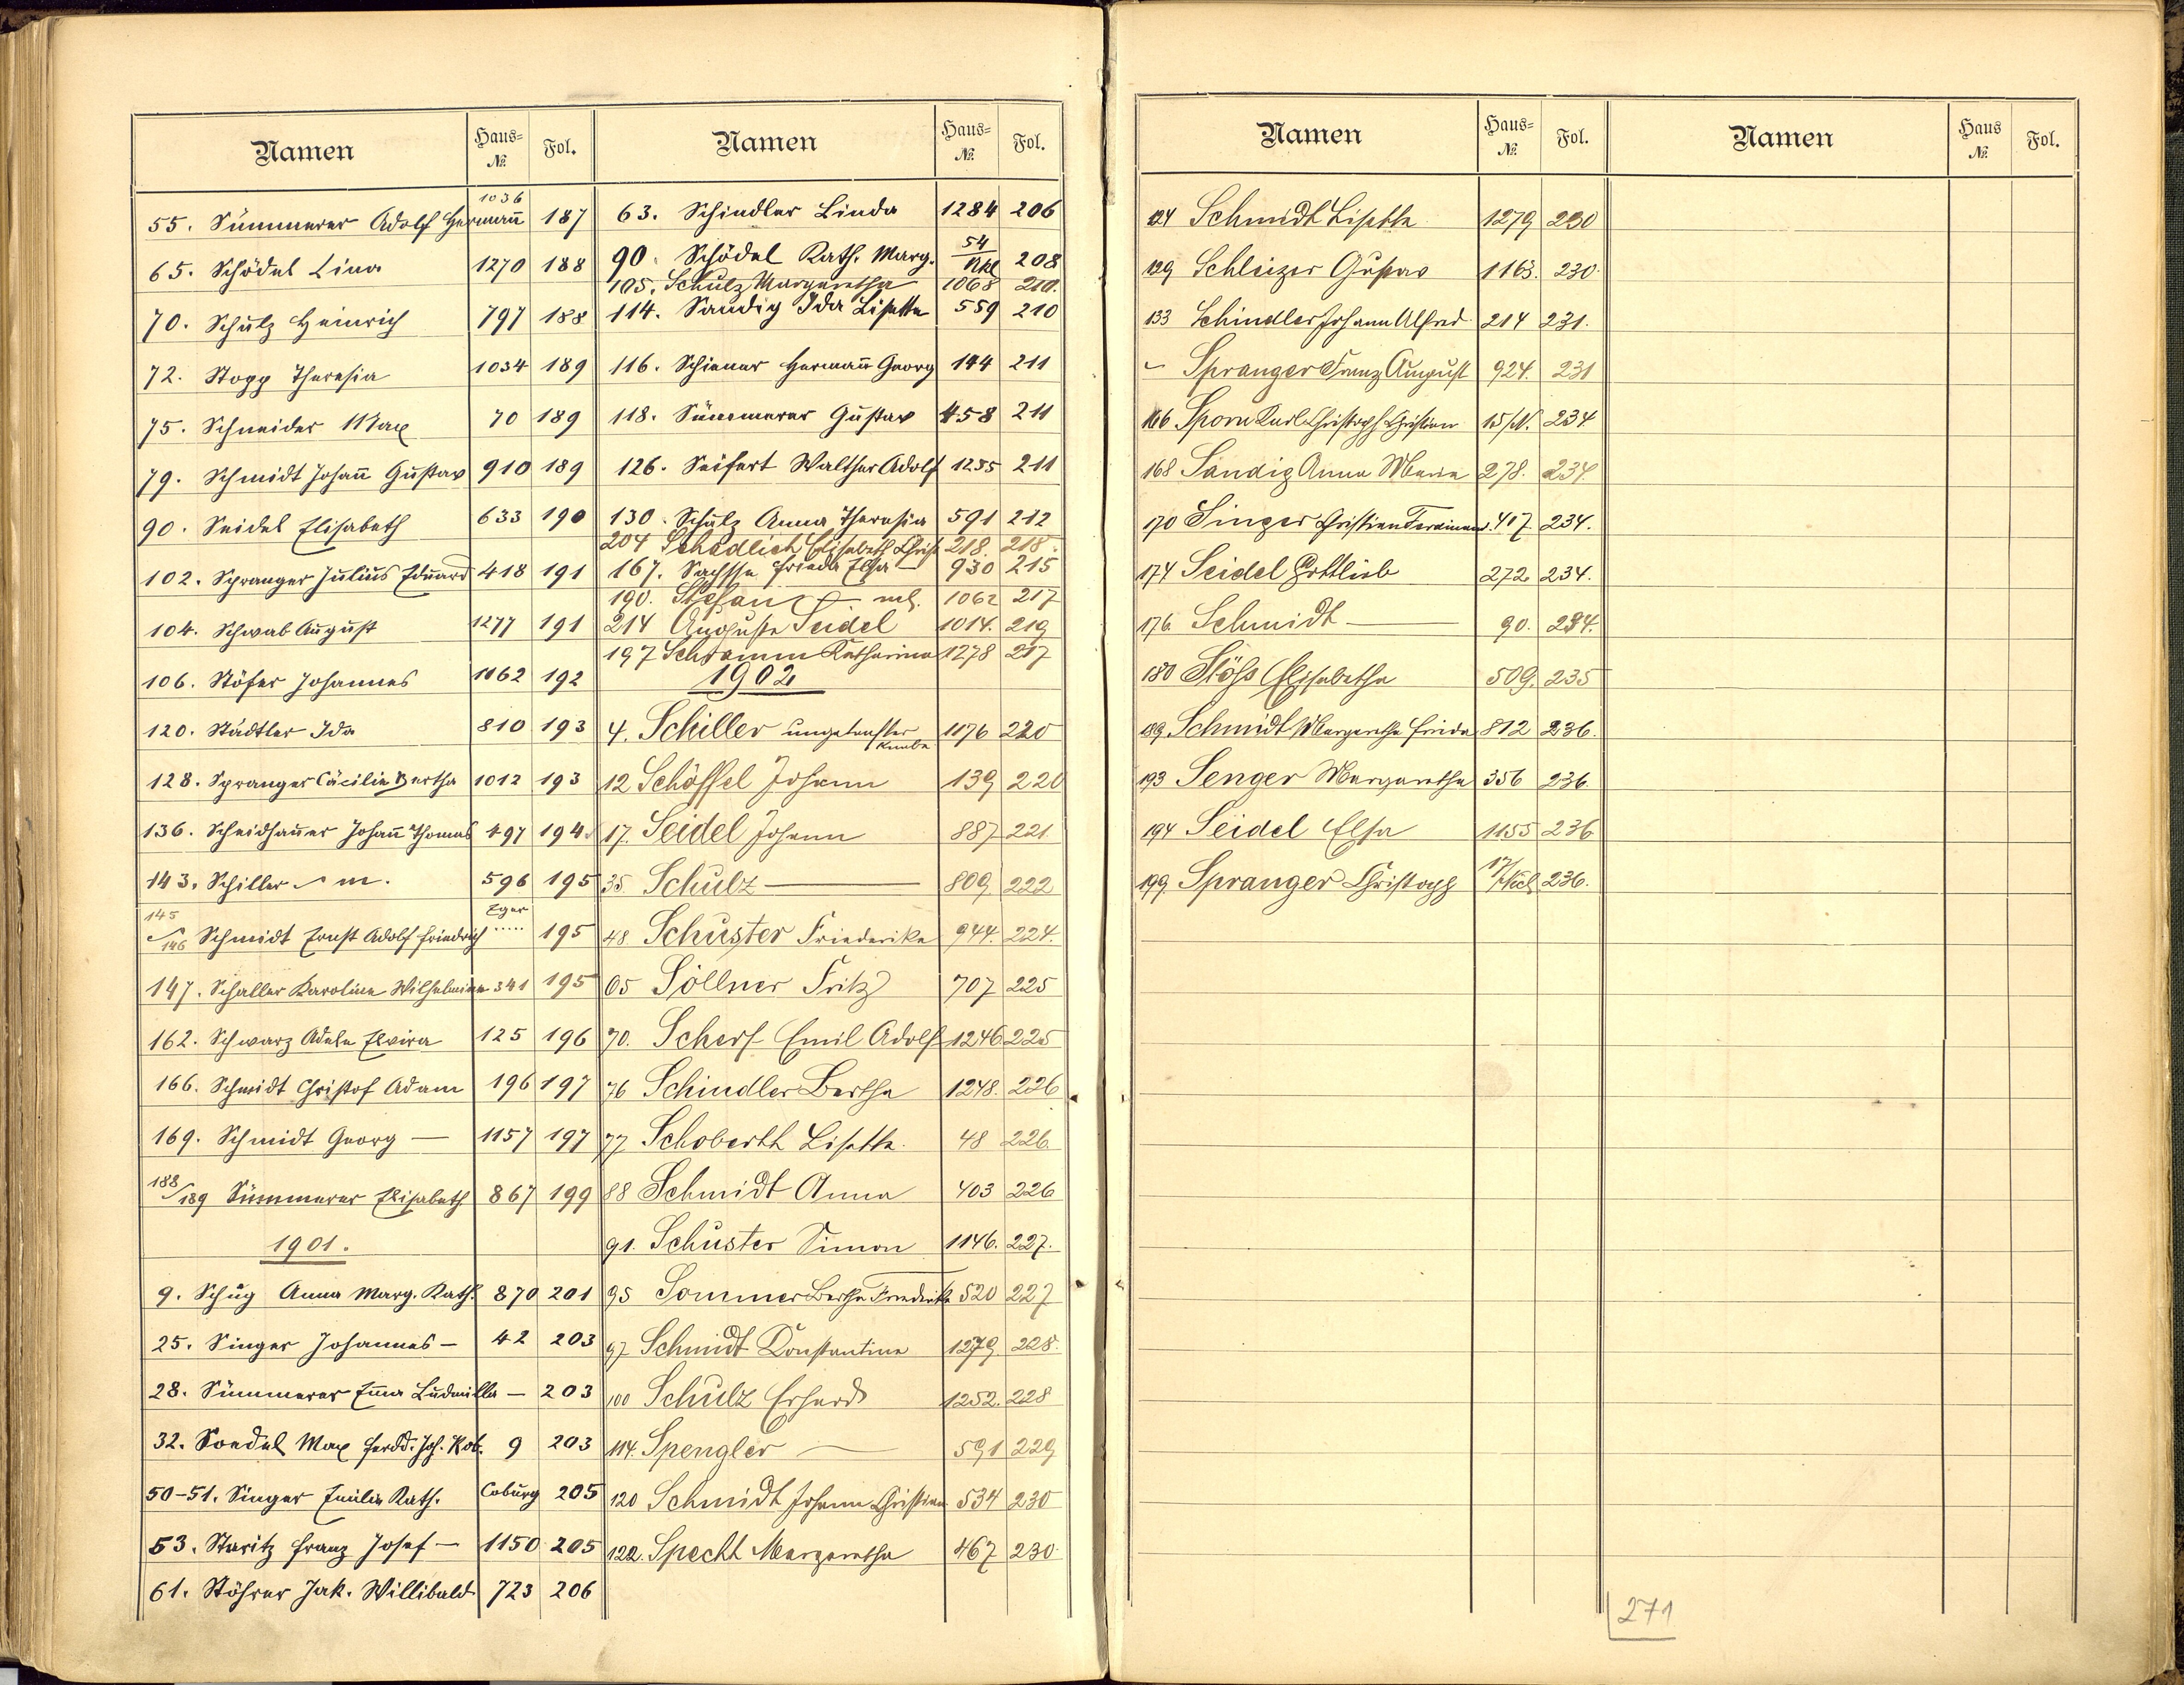 Namen Haus-№. Fol.
55. Sümmerer Adolf Hermañ 1036 187
65. Schödel Lina 1270 188
70. Schulz Heinrich 797 188
72. Stopp Theresia 1034 189
75. Schneider Max 70 189
79. Schmidt Johañ Gustav 910 189
90. Seidel Elisabeth 633 190
102. Spranger Julius Eduard 418 191
104. Schwab August 1277 191
106. Stöfer Johannes 1062 192
120. Städtler Ida 810 193
128. Spranger Cäcilie Bertha 1012 193
136. Scheidhauer Johañ Thomas 497 194
143. Schiller m. 596 195
145/146 Schmidt Ernst Adolf Friedrich Eger 195
147. Schaller Karoline Wilhelmine 341 195
162. Schwarz Adele Elvira 125 196
166. Schmidt Christof Adam 196 197
169. Schmidt Georg — 1157 197
188/189 Sümmerer Elisabeth 867 199
1901.
9. Schug Anna Marg. Kath. 870 201
25. Singer Johannes — 42 203
28. Sümmerer Emma Ludmilla — 203
32. Soedel Max Ferdd. Joh. Rob. 9 203
50-51. Singer Emilie Kath. Coburg 205
53. Staritz Franz Josef — 1150 205
61. Stöhrer Jak. Willibald 723 206
Namen Haus-№. Fol.
63. Schindler Linda 1284 206
90. Schödel Kath. Marg. 54/Nkl 208
105. Schulz Margaretha 1068 210.
114. Sandig Ida Lisette 559 210
116. Schiener Hermañ Georg 144 211
118. Sümmerer Gustav 458 211
126. Seifert Walther Adolf 1255 211
130. Schulz Anna Theresia 591 212
204 Schädlich Elisabeth Christ. 218. 218.
167. Sachsse Frieda Elsa — 930 215
190. Stefan ml. 1062 217
214 Auguste Seidel 1014. 219
197 Schramm Katharina 1278 217
1902
4. Schiller ungetaufter Knabe 1176 220
12 Schöffel Johann 139 220
17. Seidel Johann 887 221
35 Schulz — 809 222
48 Schuster Friederike 944. 224.
65 Söllner Fritz 707 225
70. Scherf Emil Adolf 1246 225
76 Schindler Bertha 1248. 226
77 Schoberth Lisette. 48 226.
88 Schmidt Anna 403 226
91. Schuster Simon 1146. 227.
95 Sommer Bertha Friederike 520 227
97 Schmidt Konstantine 1279. 228.
100 Schulz Erhard 1252. 228
114. Spengler — 591 229
120 Schmidt Johann Christian 534 230
122. Specht Margaretha 467 230
Namen Haus-№. Fol.
124 Schmidt Lisette 1279 230
129 Schleizer Gustav 1163. 230.
133 Schindler Johann Alfred 214 231.
" Spranger Franz August 924. 231
166 Sporn Karl Christoph Christian 15/N. 234
168 Sandig Anna Maria 278. 234.
170 Singer Christian Ferdinand. 417. 234.
174 Seidel Gottlieb 272 234.
176. Schmidt — 90. 234.
180 Stöss Elisabetha 509. 235
189. Schmidt Margaretha Frieda 812 236.
193 Senger Margaretha 356 236.
194 Seidel Elsa 1155 236
199 Spranger Christoph 17/Nkl 236.
Namen Haus №. Fol.
271